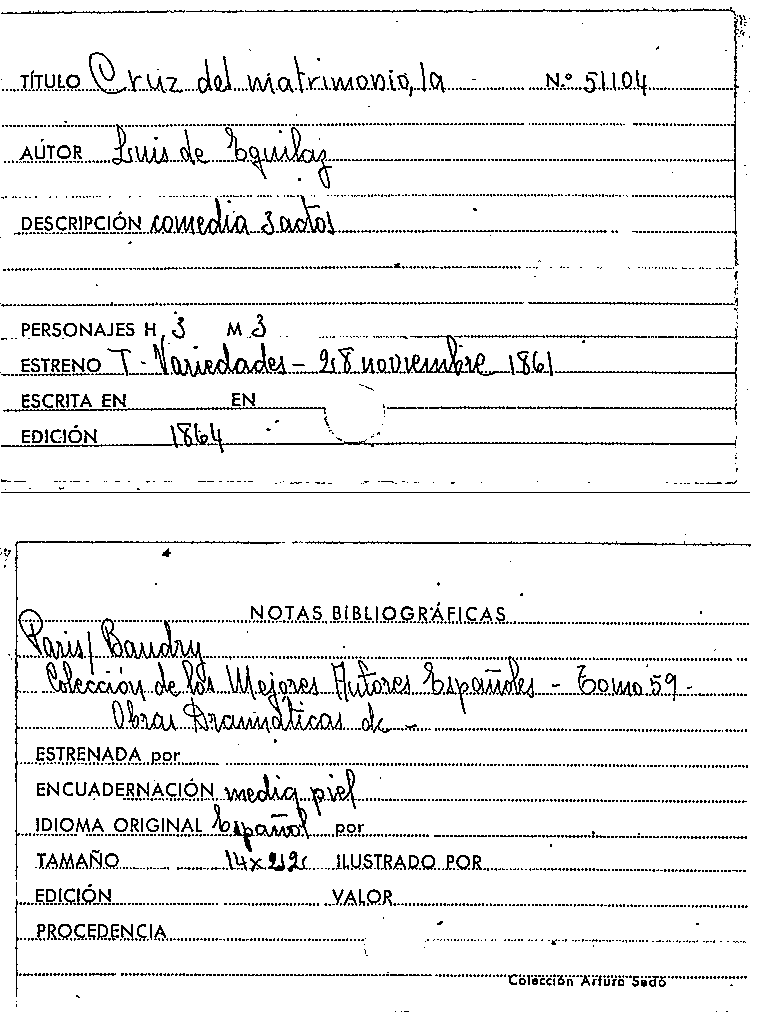 TÍTULO Cruz del matrimonio, la N.º 51104
AUTOR Luis de Eguilaz
DESCRIPCIÓN comedia 3 actos
PERSONAJES H 3 M 3
ESTRENO T. Variedades - 28 noviembre 1861
ESCRITA EN EN
EDICIÓN 1864
NOTAS BIBLIOGRÁFICAS
Paris/ Baudry
Colección de los Mejores Autores Españoles - Tomo 59 -
Obras Dramáticas de -
ESTRENADA por
ENCUADERNACIÓN media piel
IDIOMA ORIGINAL Español por
TAMAÑO 14x22 ILUSTRADO POR
EDICIÓN VALOR
PROCEDENCIA
Colección Arturo Sedó